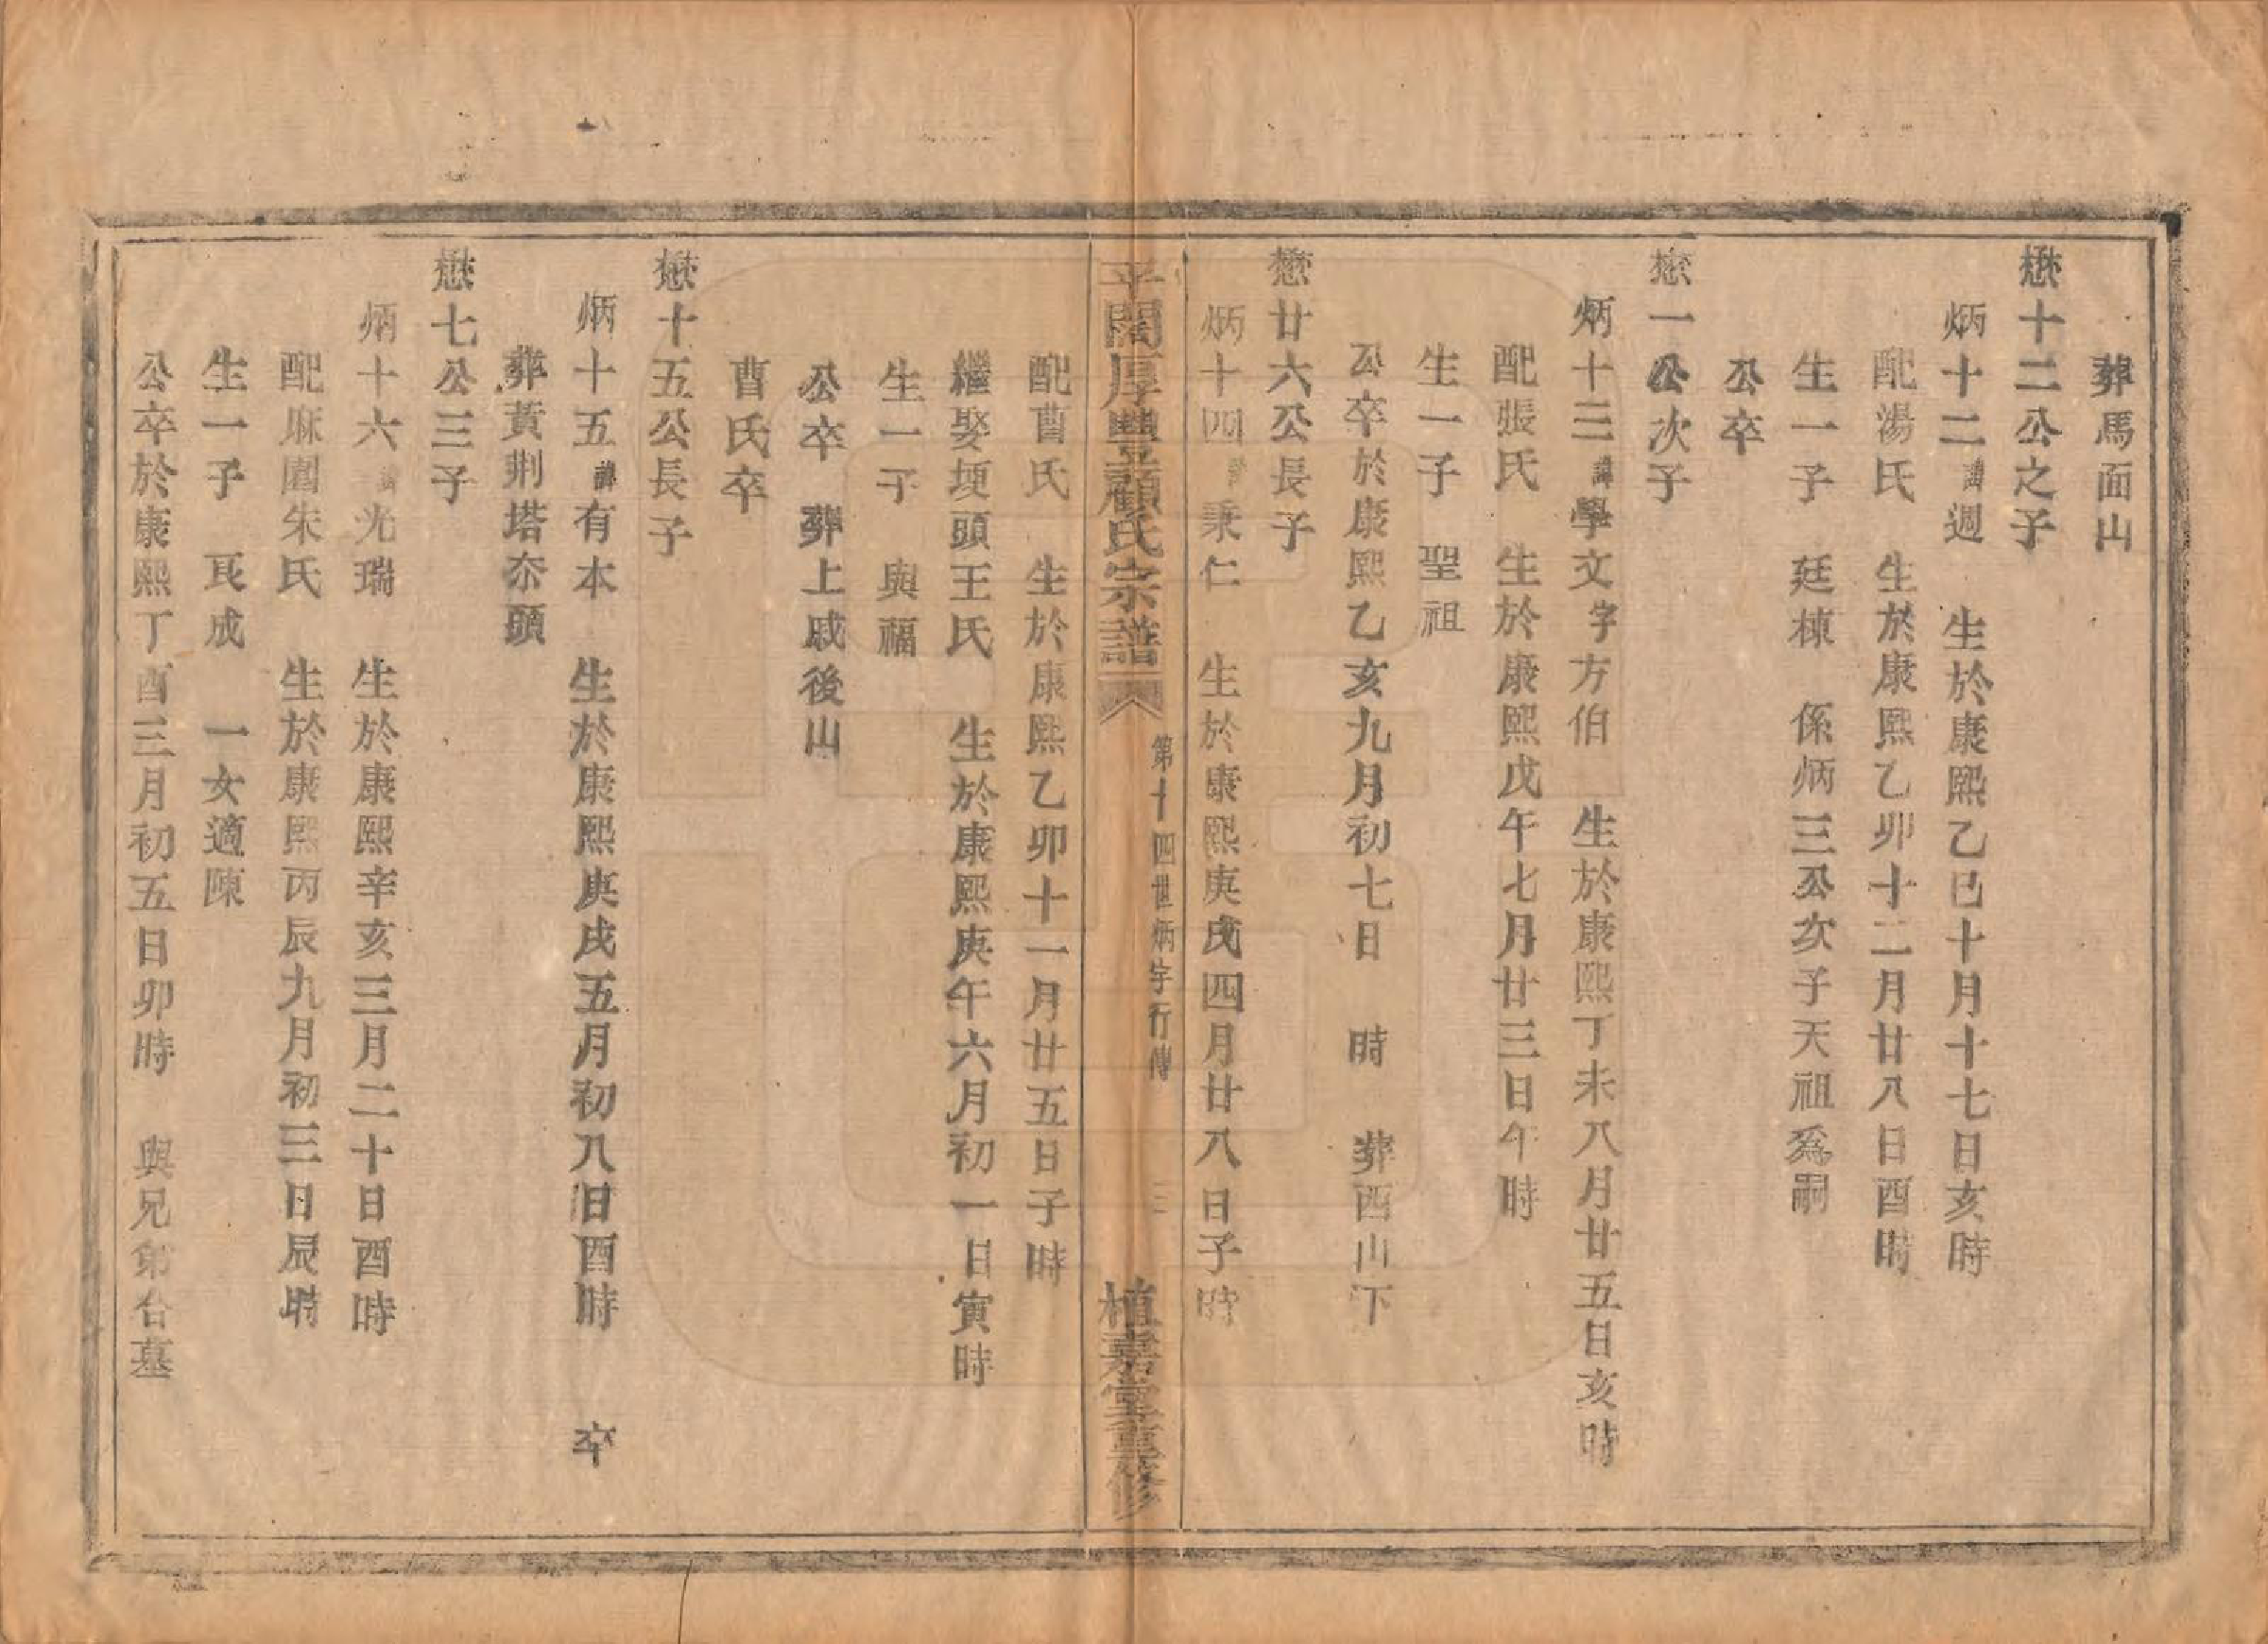 葬馬面山
懋十二公之子
炳十二諱週　生於康熙乙巳十月十七日亥時
配湯氏　生於康熙乙卯十二月廿八日酉時
生一子　廷棟　係炳三公次子天祖爲嗣
公卒
懋一公次子
炳十三諱學文字方伯　生於康熙丁未八月廿五日亥時
配張氏　生於康熙戊午七月廿三日午時
生一子　聖祖
公卒於康熙乙亥九月初七日　時　葬西山下
懋廿六公長子
炳十四諱秉仁　生於康熙庚戌四月廿八日子時
平闊厚豐顧氏宗譜
第十四世炳字行傳
三
植嘉堂重修
配曹氏　生於康熙乙卯十一月廿五日子時
繼娶埂頭王氏　生於康熙庚午六月初一日寅時
生一子　與福
公卒　葬上戚後山
曹氏卒
懋十五公長子
炳十五諱有本　生於康熙庚戌五月初八日酉時　卒
葬黃荆塔夵頭
懋七公三子
炳十六諱光瑞　生於康熙辛亥三月二十日酉時
配麻園朱氏　生於康熙丙辰九月初三日辰時
生一子　艮成　一女適陳
公卒於康熙丁酉三月初五日卯時　與兄弟合墓